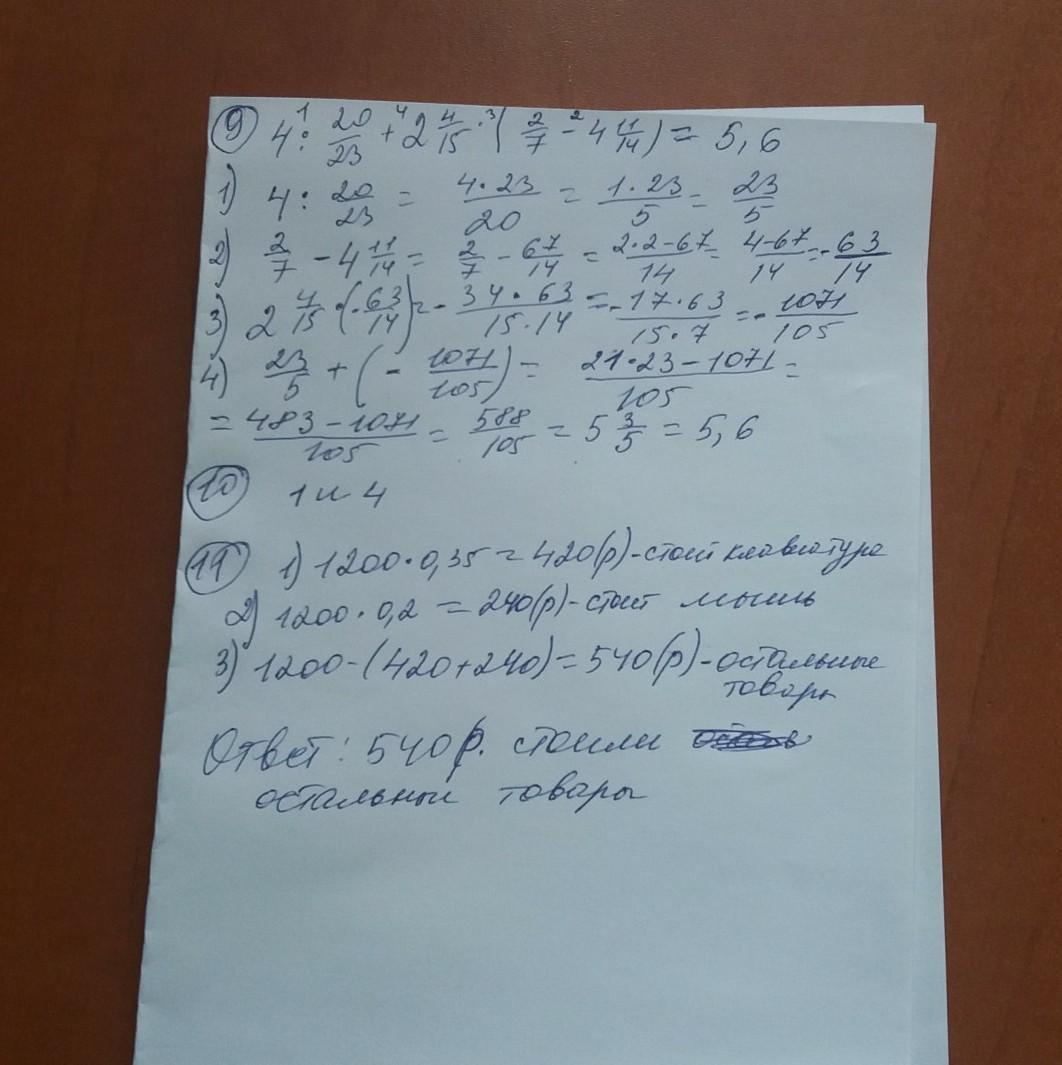 9 4 : 20/23 + 2 4/15 · (2/7 - 4 11/14) = 5,6
1) 4 : 20/23 = 4·23/20 = 1·23/5 = 23/5
2) 2/7 - 4 11/14 = 2/7 - 67/14 = 2·2-67/14 = 4-67/14 = -63/14
3) 2 4/15 · (-63/14) = - 34·63/15·14 = -17·63/15·7 = -1071/105
4) 23/5 + (-1071/105) = 21·23-1071/105 =
= 483-1071/105 = 588/105 = 5 3/5 = 5,6
10 1 и 4
11 1) 1200·0,35 = 420(р)-стоит клавиатура
2) 1200·0,2 = 240(р)-стоит мышь
3) 1200-(420+240) = 540(р)-остальные
товары
Ответ: 540р. стоили
остальные товары